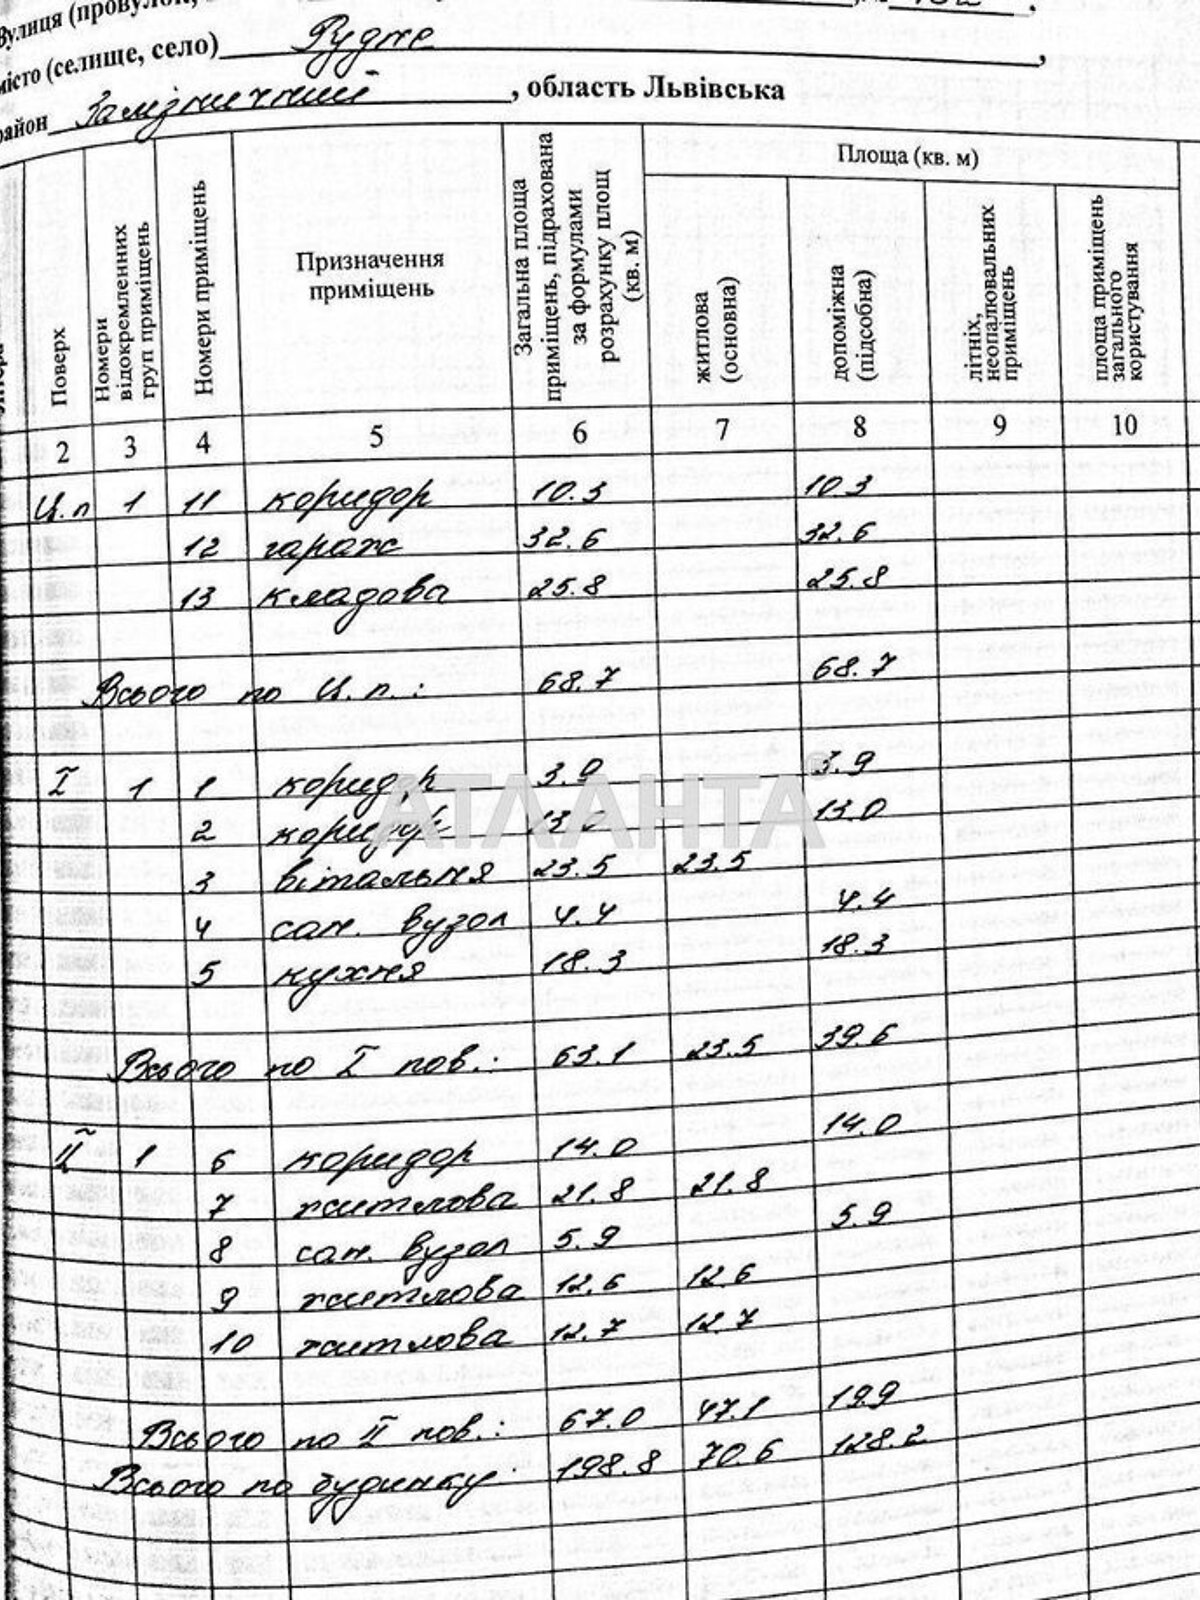 Вулиця (провулок,
місто (селище, село) Рудне,
район Залізничний, область Львівська
Поверх
Номери відокремлених груп приміщень
Номери приміщень
Призначення приміщень
Загальна площа приміщень, підрахована за формулами розрахунку площ (кв. м)
Площа (кв. м)
житлова (основна)
допоміжна (підсобна)
літніх, неопалювальних приміщень
площа приміщень загального користування
2 3 4 5 6 7 8 9 10
Ц.п 1 11 коридор 10.3 10.3
12 гараж 32.6 32.6
13 кладова 25.8 25.8
Всього по Ц.п.: 68.7 68.7
I 1 1 коридор 3.9 3.9
2 коридор 13.0 13.0
3 вітальня 23.5 23.5
4 сан. вузол 4.4 4.4
5 кухня 18.3 18.3
Всього по I пов.: 63.1 23.5 39.6
II 1 6 коридор 14.0 14.0
7 житлова 21.8 21.8
8 сан. вузол 5.9 5.9
9 житлова 12.6 12.6
10 житлова 12.7 12.7
Всього по II пов.: 67.0 47.1 19.9
Всього по будинку: 198.8 70.6 128.2
АТЛАНТА®